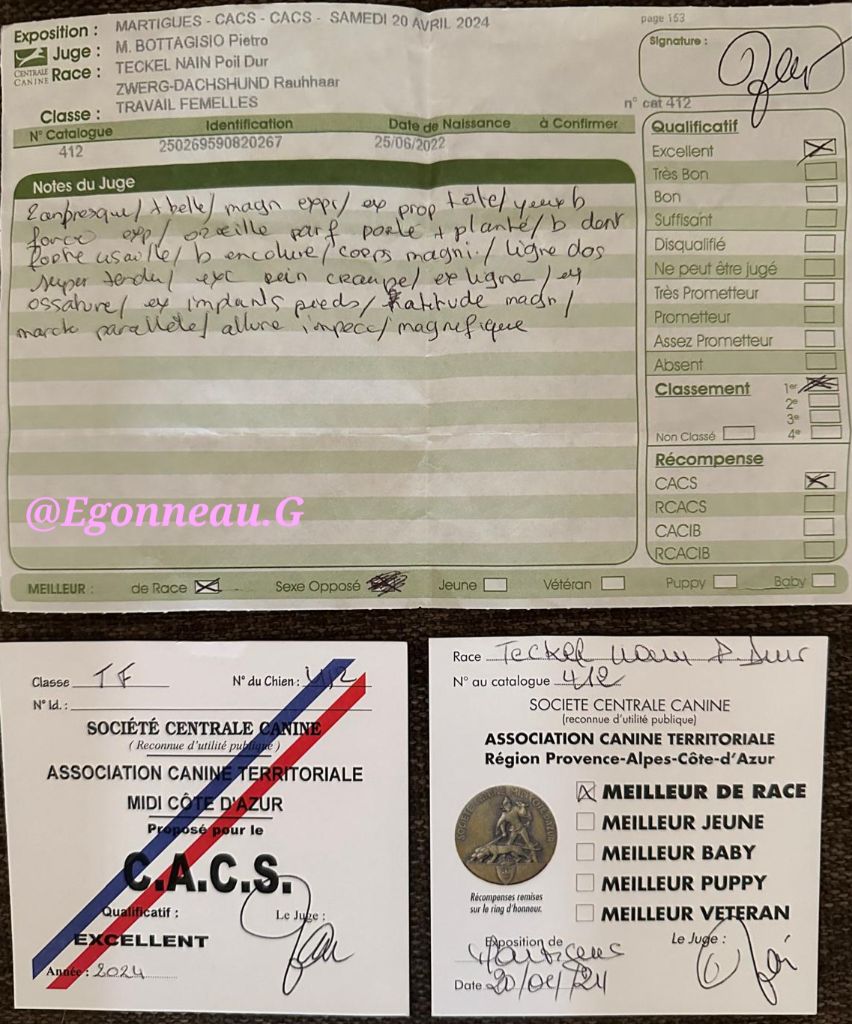 Exposition : MARTIGUES - CACS - CACS - SAMEDI 20 AVRIL 2024
page 153
Juge : M. BOTTAGISIO Pietro
CENTRALE CANINE
Race : TECKEL NAIN Poil Dur
ZWERG-DACHSHUND Rauhhaar
Classe : TRAVAIL FEMELLES
Signature :
n° cat 412
N° Catalogue Identification Date de Naissance à Confirmer
412 250269590820267 25/06/2022
Notes du Juge
belle/ magn expr/ ex prop tete/ yeux b
force exp/ oreille parf porté + planté/ b dent
b encolure/ corps magni./ ligne dos
super tendu/ exc rein croupe/ ex ligne/ ex
ossature/ ex implants pieds/ attitude magn/
march parallele/ allure impecc/ magnefique
Qualificatif
Excellent
Très Bon
Bon
Suffisant
Disqualifié
Ne peut être jugé
Très Prometteur
Prometteur
Assez Prometteur
Absent
Classement 1er
2e
3e
Non Classé 4e
Récompense
CACS
RCACS
CACIB
RCACIB
@Egonneau.G
MEILLEUR : de Race Sexe Opposé Jeune Vétéran Puppy Baby
Classe TF N° du Chien : 412
N° Id. :
SOCIÉTÉ CENTRALE CANINE
( Reconnue d'utilité publique )
ASSOCIATION CANINE TERRITORIALE
MIDI CÔTE D'AZUR
Proposé pour le
C.A.C.S.
Qualificatif : Le Juge :
EXCELLENT
Année : 2024
Race Teckel nain P. Dur
N° au catalogue 412
SOCIETE CENTRALE CANINE
(reconnue d'utilité publique)
ASSOCIATION CANINE TERRITORIALE
Région Provence-Alpes-Côte-d'Azur
MEILLEUR DE RACE
MEILLEUR JEUNE
MEILLEUR BABY
MEILLEUR PUPPY
MEILLEUR VETERAN
Récompenses remises
sur le ring d'honneur.
Exposition de Martigues
Le Juge :
Date 20/04/24